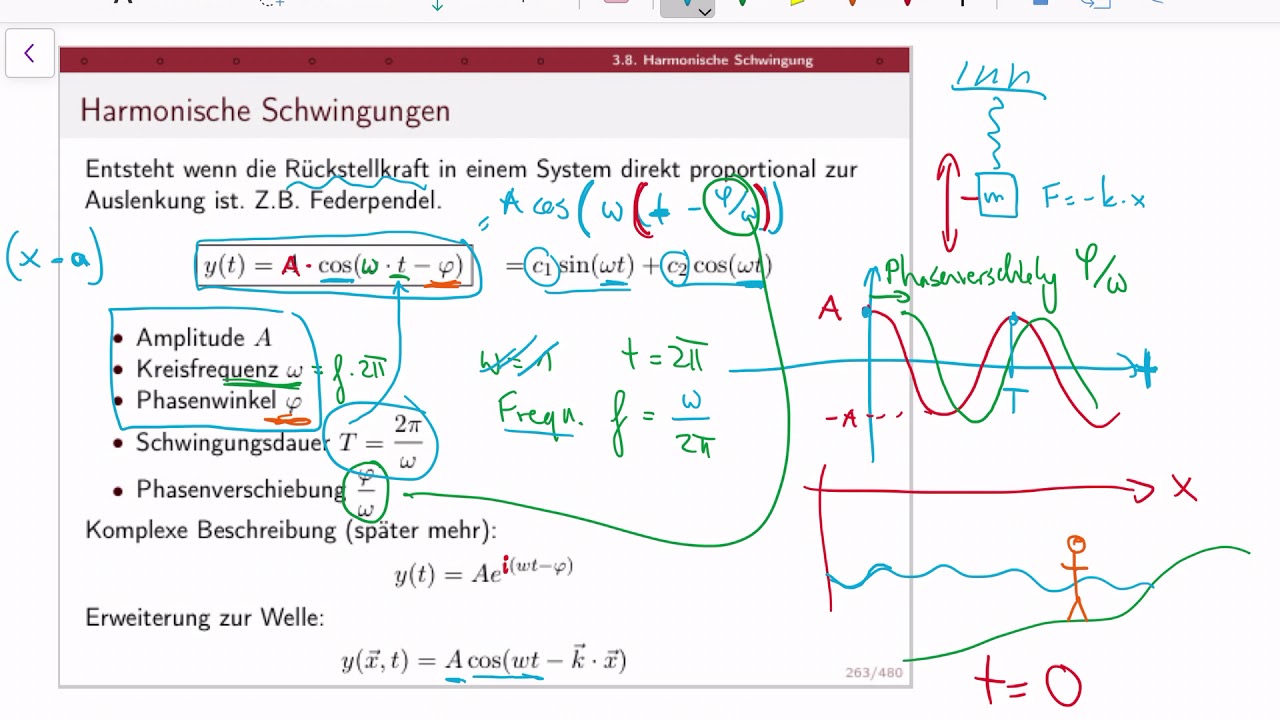 3.8. Harmonische Schwingung
Harmonische Schwingungen
Entsteht wenn die Rückstellkraft in einem System direkt proportional zur
Auslenkung ist. Z.B. Federpendel.
= A cos(ω(t - φ/ω))
(x - a)
y(t) = A · cos(ω · t − φ) = c₁ sin(ωt) + c₂ cos(ωt)
• Amplitude A
• Kreisfrequenz ω = f · 2π
• Phasenwinkel φ
• Schwingungsdauer T = 2π/ω
• Phasenverschiebung φ/ω
ω = 1 t = 2π
Frequ. f = ω/2π
Komplexe Beschreibung (später mehr):
y(t) = Ae^{i(wt−φ)}
Erweiterung zur Welle:
y(x⃗, t) = A cos(wt − k⃗ · x⃗)
263/480
m F = -k · x
Phasenverschiebg φ/ω
A
-A
T
t
x
t = 0